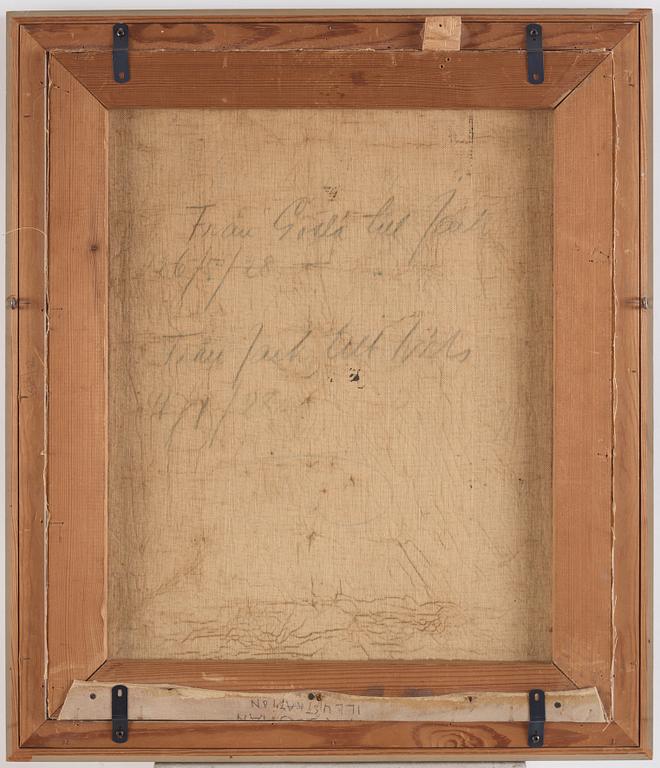 Från Gösta till Jack
26/5/28
Från Jack till Nils
4/9/28
ILLUSTRATION